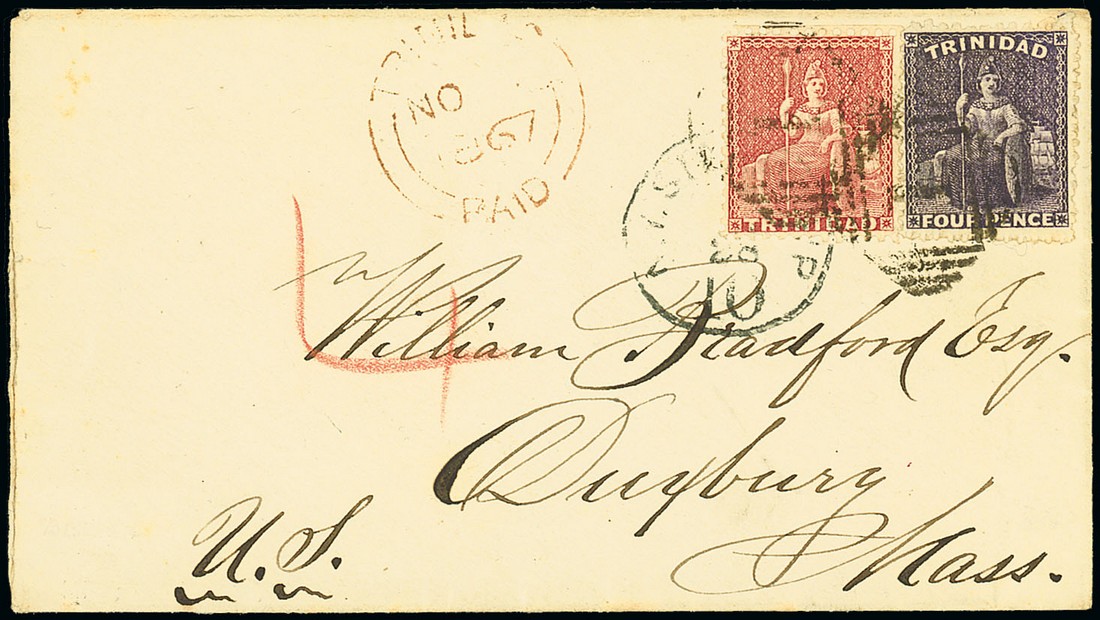 TRINIDAD
TRINIDAD
FOUR PENCE
NO
67
PAID
10
4
William Bradford Esq.
Duxbury
Mass.
U.S.